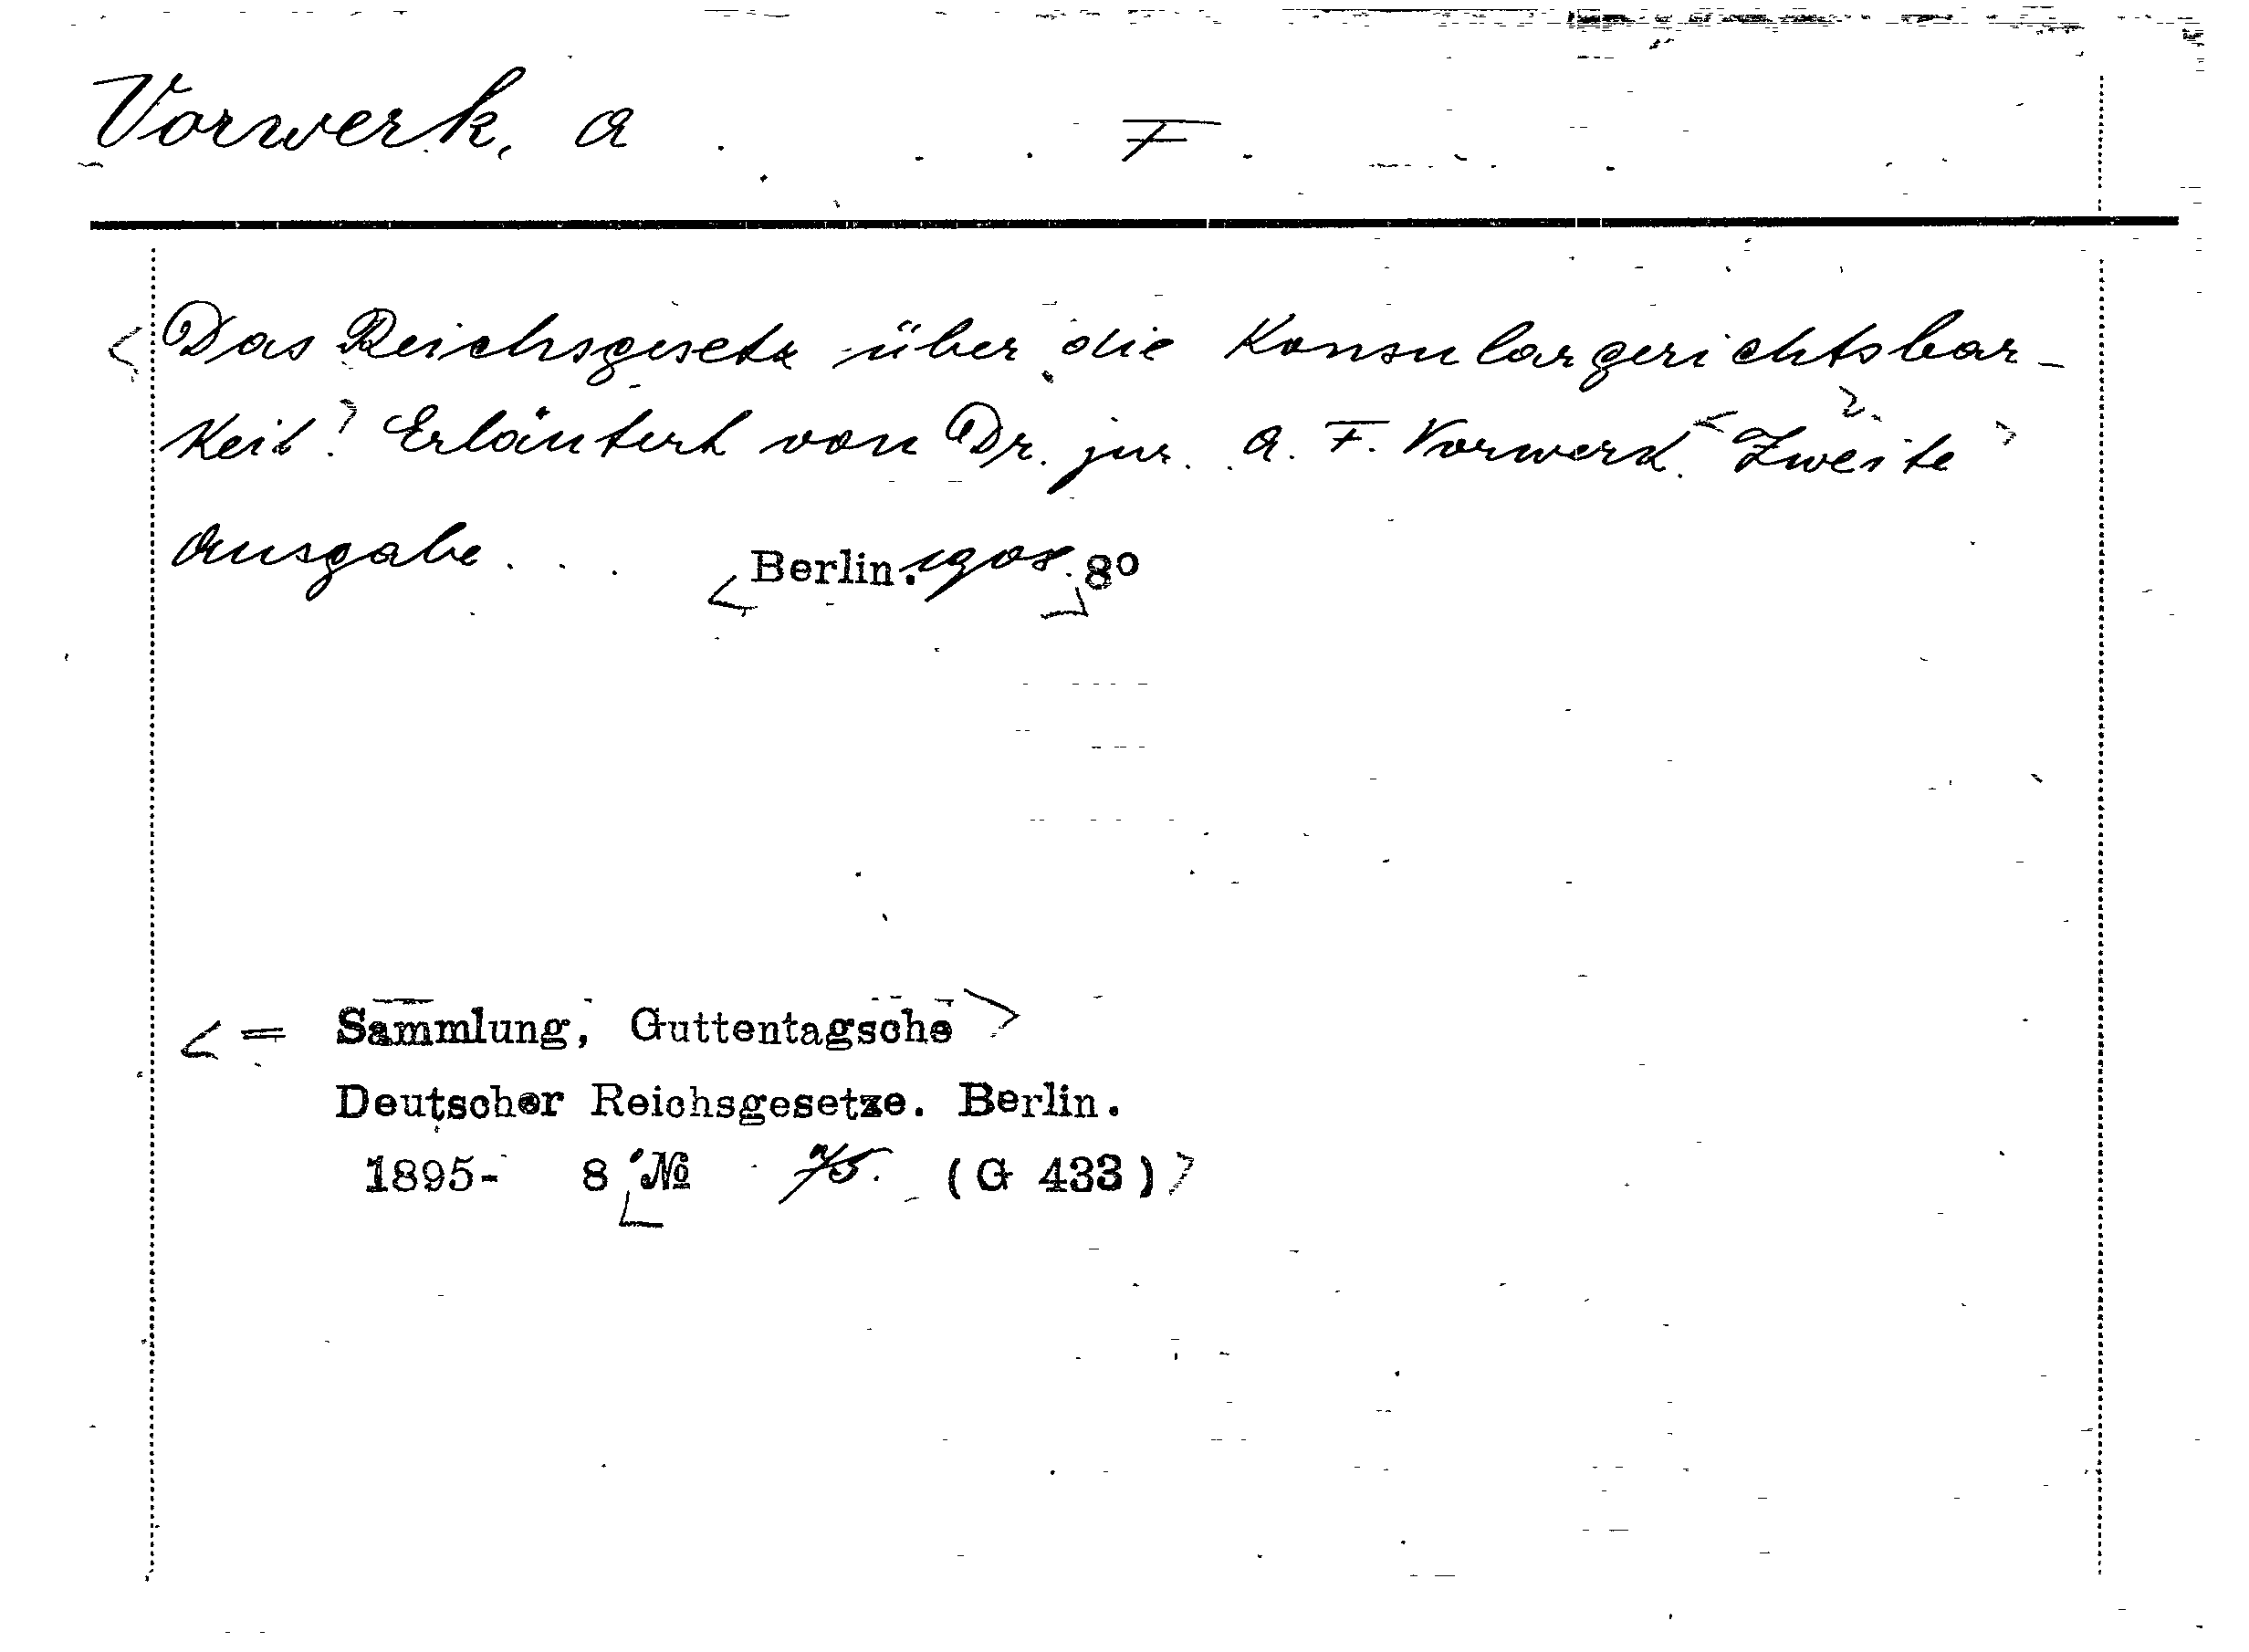 Vorwerk, A. . . F.
<Das Reichsgesetz über die Konsulargerichtsbar-
keit.> Erläutert von Dr. jur. A. F. Vorwerk. <Zweite>
2.
Ausgabe . . . <Berlin. 1908.> 8º
<= Sammlung, Guttentagsche>
Deutscher Reichsgesetze. Berlin.
1895- 8º <№ 75. (G 433)>